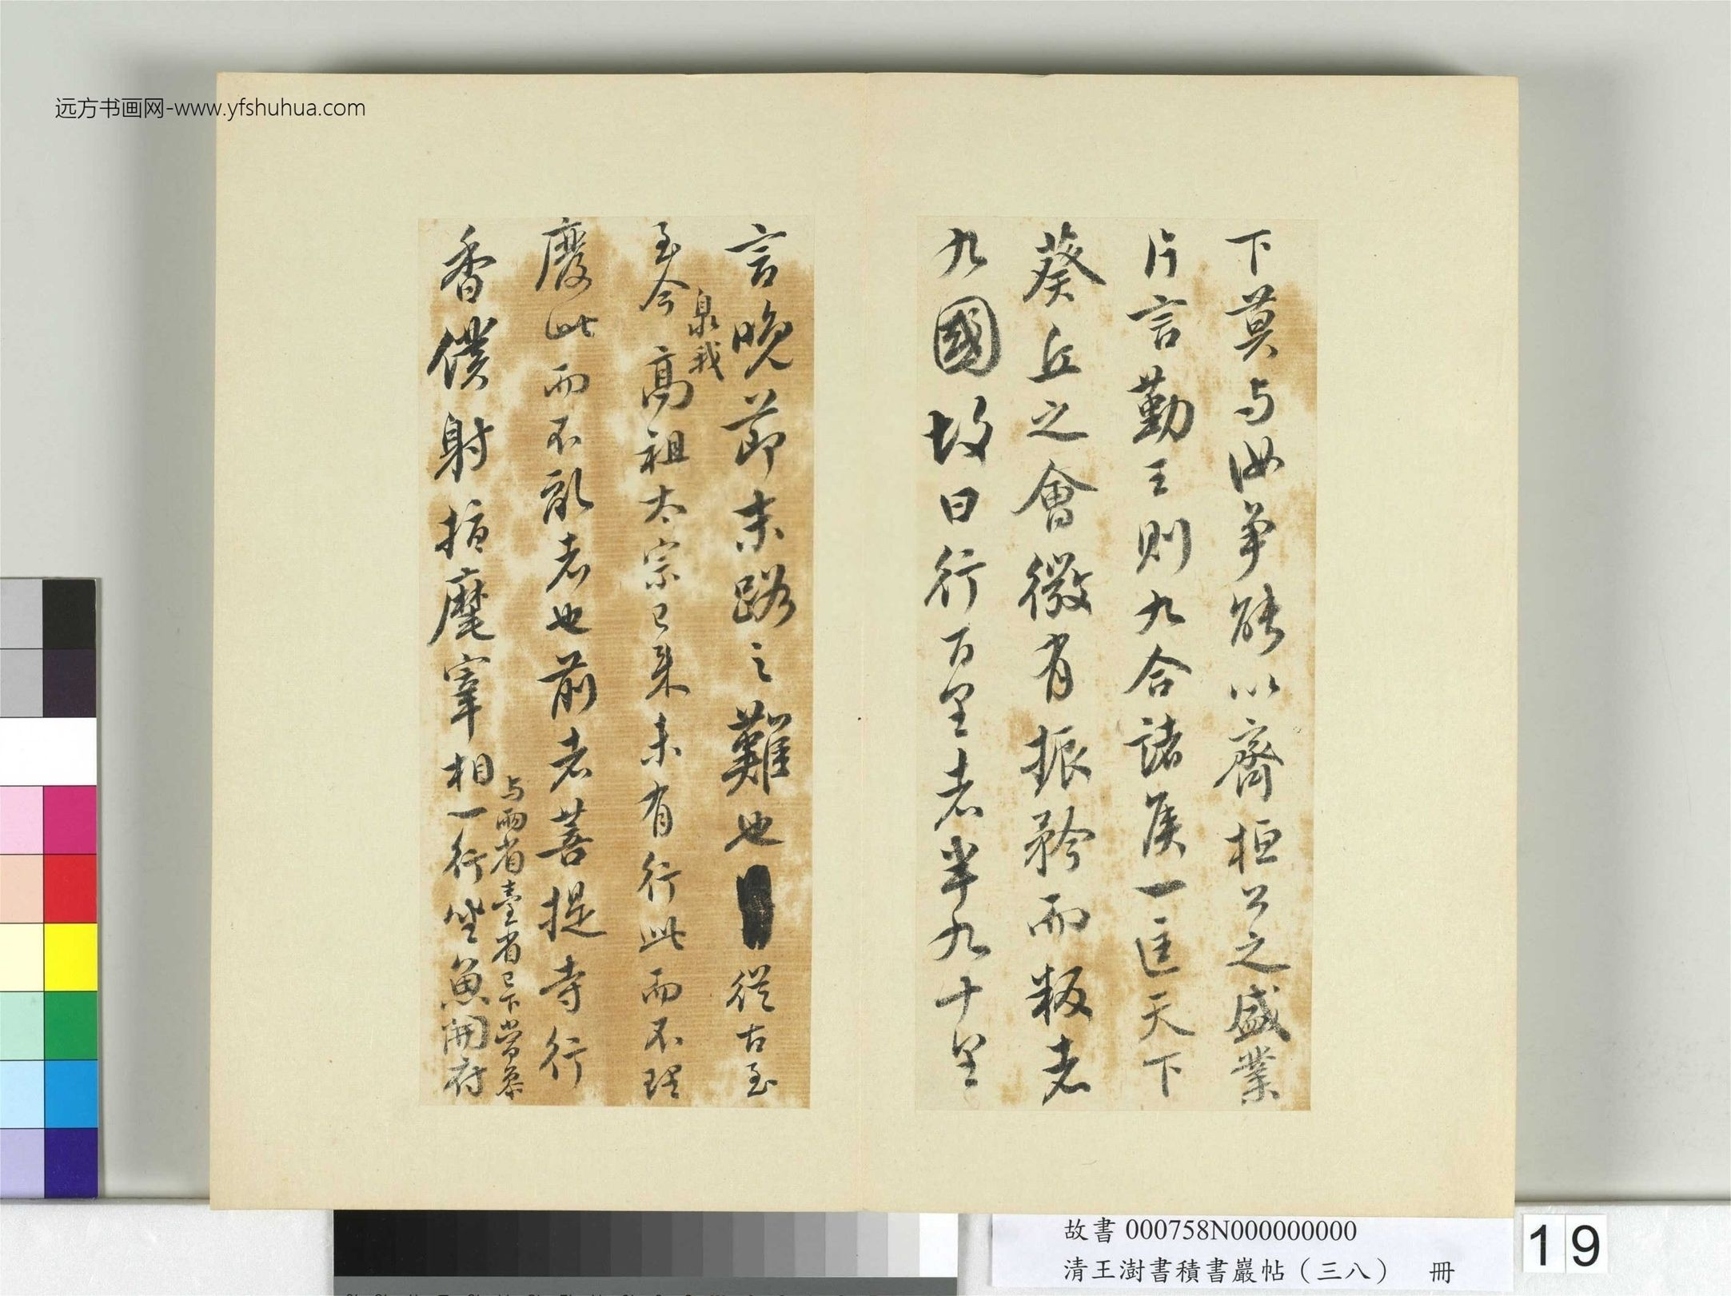 远方书画网-www.yfshuhua.com
下莫与汝争能以齊桓公之盛業
片言勤王則九合諸侯一匡天下
葵丘之會微有振矜而叛者
九國故曰行百里者半九十里
言晚節末路之難也從古至
泉我
至今高祖太宗已來未有行此而不理
廢此而不亂者也前者菩提寺行
与兩省臺省已下常參
香僕射指麾宰相一行坐魚開府
故書 000758N000000000
清王澍書積書巖帖（三八） 冊
19